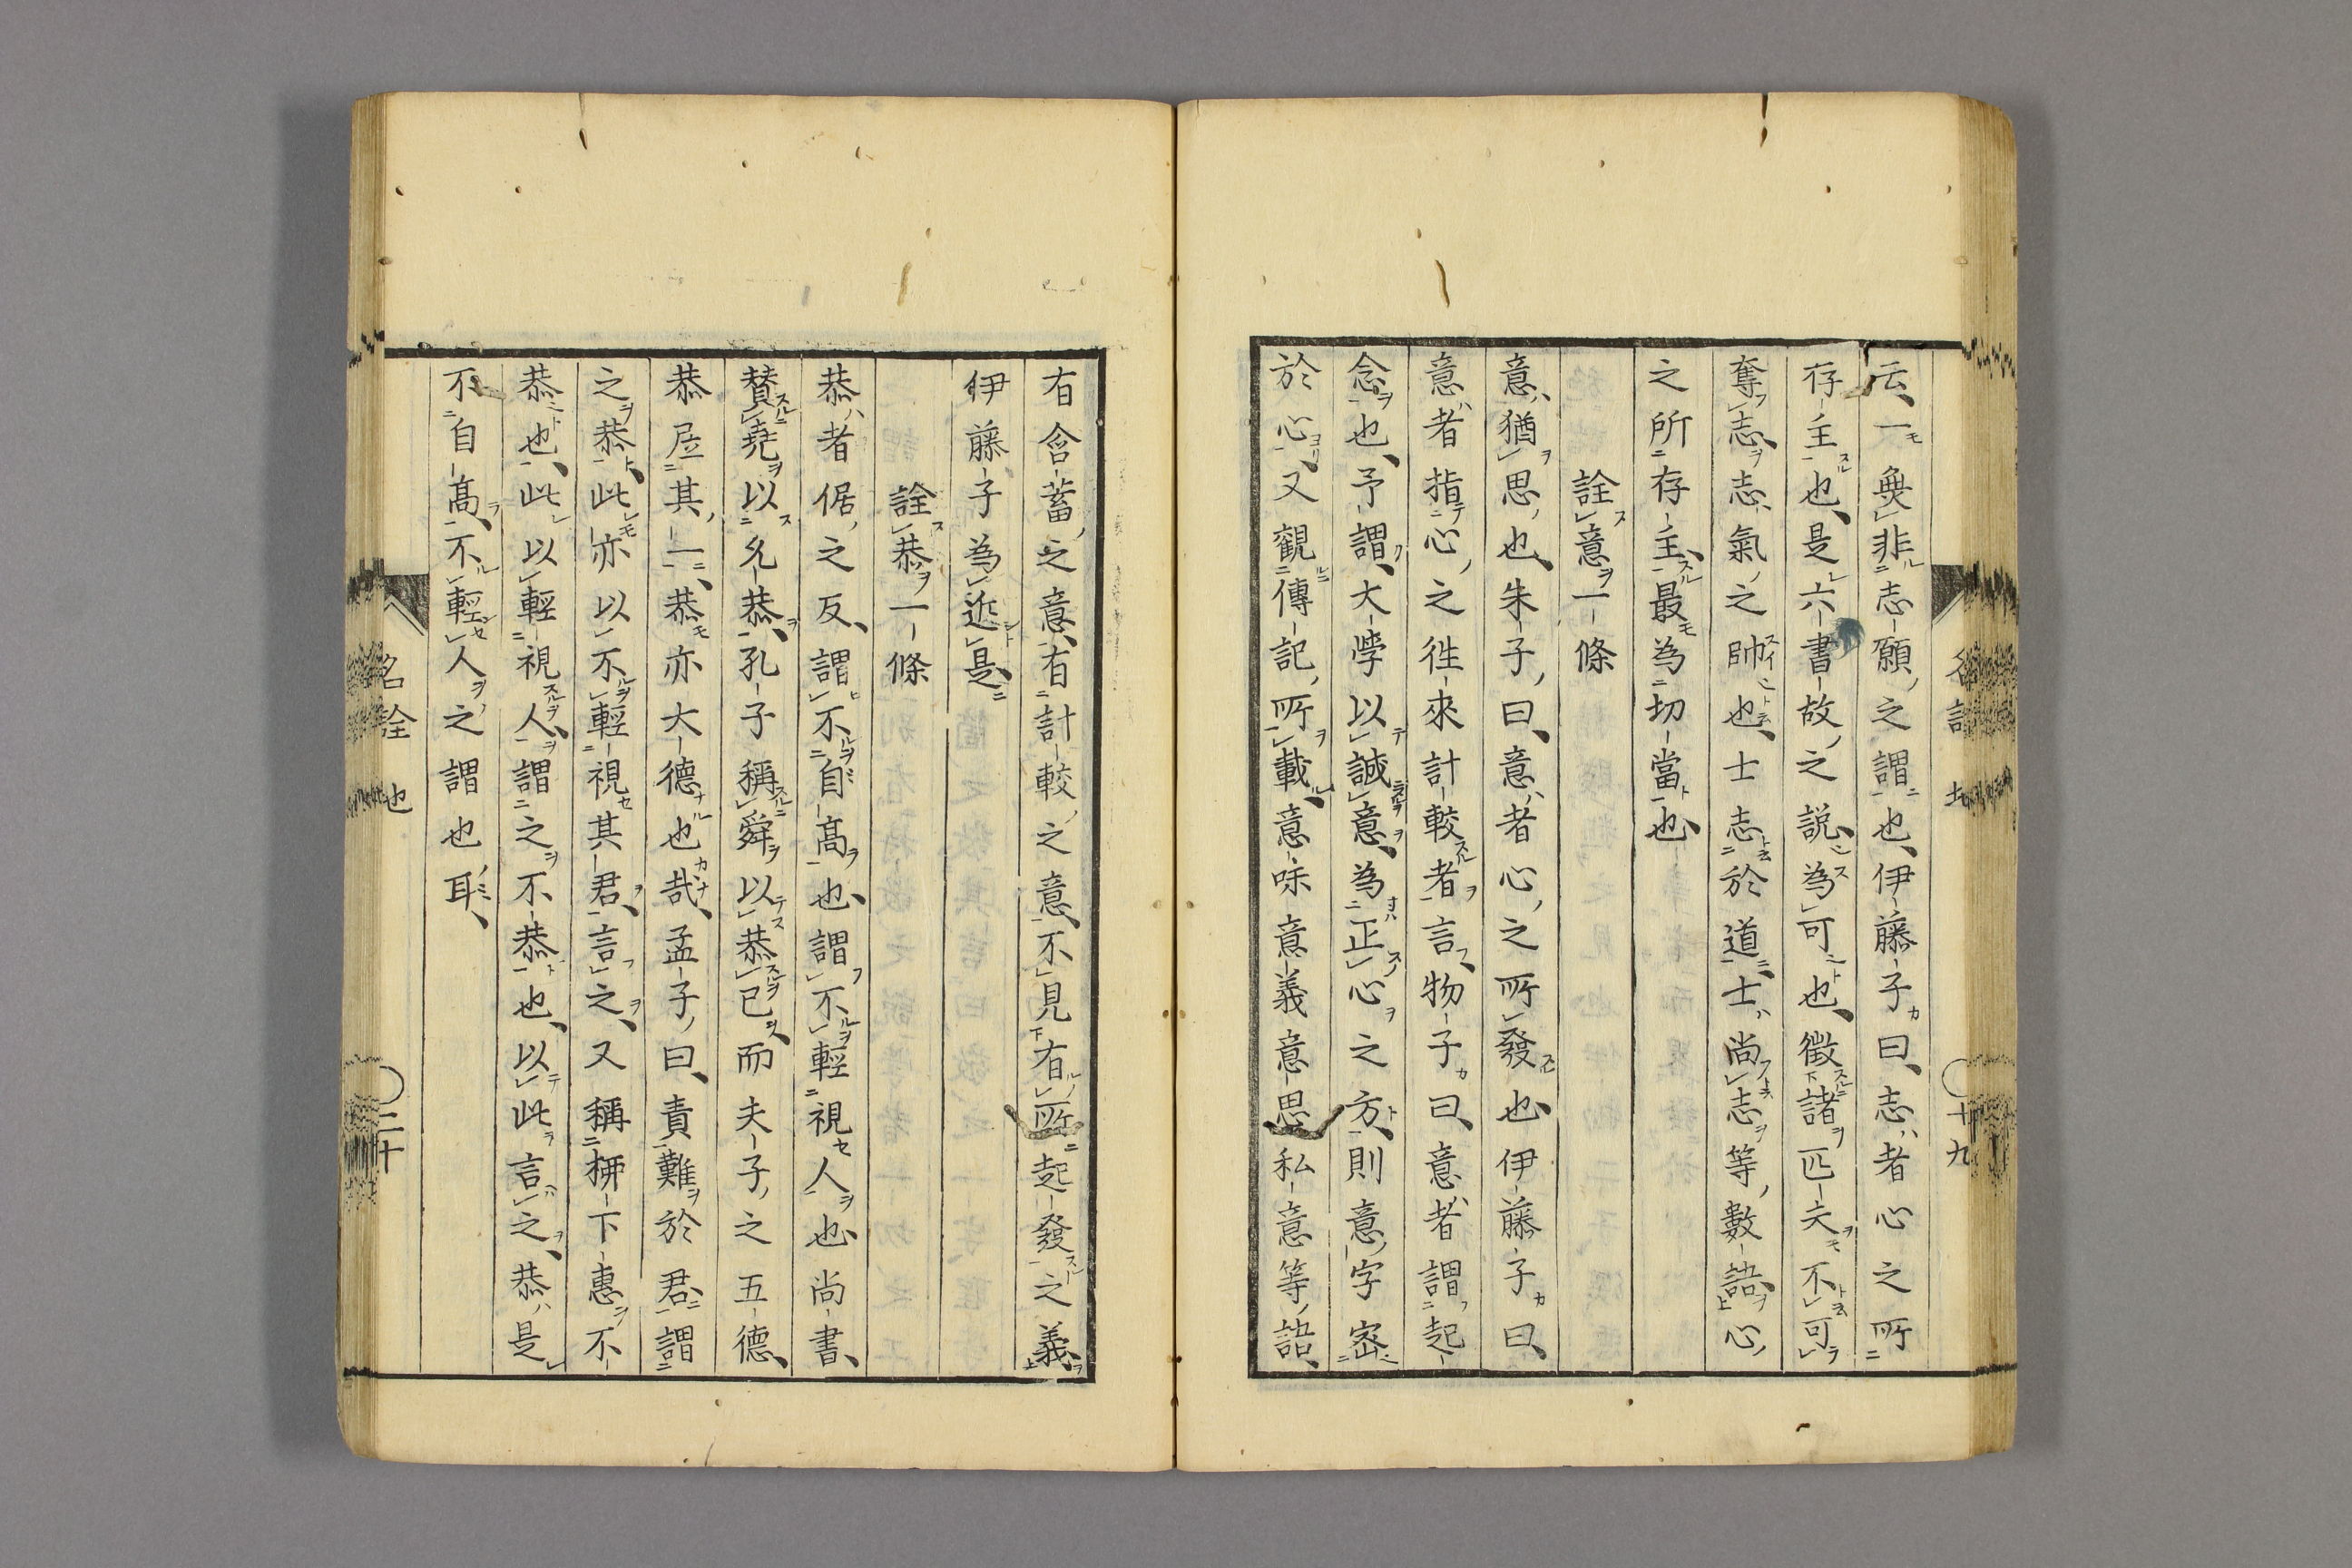 云、一無非志願之謂也、伊藤子曰、志者心之所
存主也、是六書故之説、為可也、徵諸匹夫不可
奪志、志氣之帥也、士志於道、士尚志等數語、心
之所存主、最為切當也、
詮意一條
意猶思也、朱子曰、意者心之所發也、伊藤子曰、
意者指心之徃來計較者言、物子曰、意者謂起
念也、予謂、大學以誠意、為正心之方、則意字密
於心、又觀傳記所載、意味意義意思私意等語、
名詮 也 〇十九
有含蓄之意、有計較之意、不見有所起發之義、
伊藤子為近是、
詮恭一條
恭者倨之反、謂不自高也、謂不輕視人也、尚書、
賛堯以允恭、孔子稱舜以恭己、而夫子之五德、
恭居其一、恭亦大德也哉、孟子曰、責難於君、謂
之恭、此亦以不輕視其君、言之、又稱柳下惠不
恭也、此以輕視人、謂之不恭也、以此言之、恭是
不自高、不輕人之謂也耳、
名詮 也 〇二十